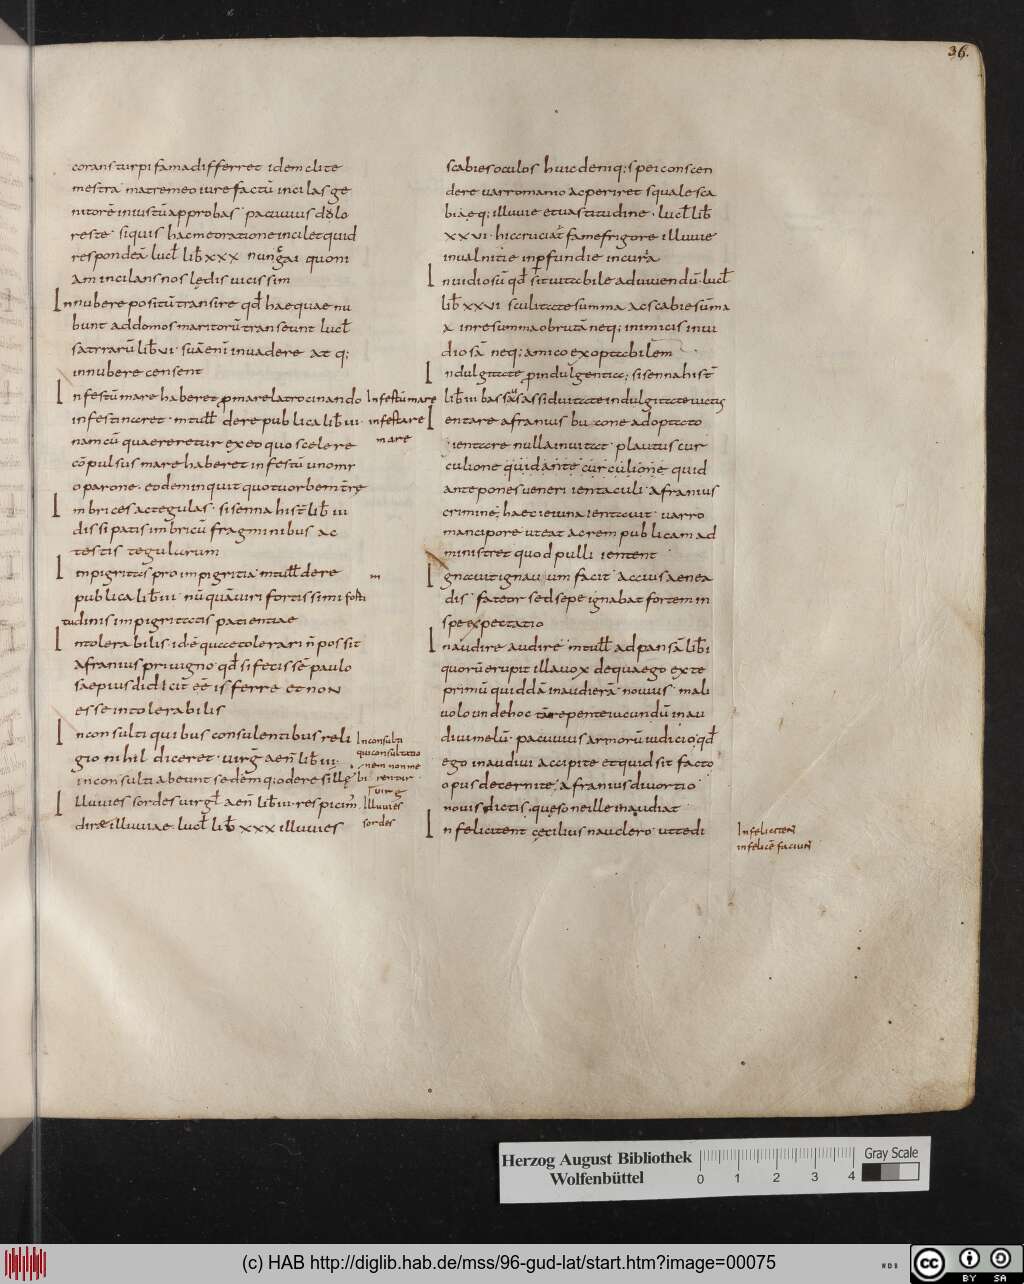 36.
corans turpi fama differret idem clite
mestra matrem eo iure factū incilas ge
nitorē iniustū approbas pacuuius dolo
reste siquis hac me oratione incilet quid
respondeā lucł lib̄ xxx nunc gai quoni
am incilans nos lędis uicissim
Innubere positū transire qđ hae quae nu
bunt ad domos maritorū transeunt lucł
satrrarū lib̄ vi suā eni inuadere at q;
innubere censent
Infestū mare haberet p̱ mare latrocinando
infestin&aret mtulł de re publica lib̄ iii
nam cū quaereretur ex eo quo scelere
cōpulsus mare haberet infestū uno mr
oparone eodem inquit quo tuorbem tr̄e
Imbrices ac tegulas sisenna hist̄ lib̄ iii
dissipatis imbricū fragminibus ac
testis tegularum
Inpigritas pro impigritia mtulł de re
publica lib̄ iii nū quā uiri fortissimi forti
tudinis impigritatis patientiae
Intolerabilis id ē quae tolerari n̄ possit
afranius priuigno qđ si fecissē paulo
saepius didicit ēē is ferre et non
esse intolerabilis
Inconsulti quibus consulentibus reli
gio nihil diceret uirg̅ aen̄ lib̄ iii
inconsulti abeunt sedem q; odere sillę
Illuuies sordes uirgł aen̄ lib̄ iii respicim̄
dirae illuuiae lucł lib̄ xxx illuuies
Infestū mare
infestare
mare
Inconsulti
qui consultatio
nem non me
rentur
Illuuies
sordes
scabies oculos huic deniq; spei conscen
dere uarro manio ac periret squale sca
biae q; illuuie et uastitudine lucł lib̄
xxvi hic cruciat̄ fame frigore illuuie
inualnitie inp̱fundie incura
Inuidiosū qđ sit uitabile ad uiuendū lucł
lib̄ xxvi sculitate summa ac scabie sūma
a in re summa obrutā neq; inimicis inui
diosā neq; amico exoptabilem
Indulgitate p̱ indulgentia; sisenna hist̄
lib̄ iii bassus assiduitate indulgitate uictus
Ientare afranius bucone adoptato
ientare nulla inuitat plautus cur
culione quid ante curculione quid
antepones ueneri ientaculi afranius
crimine; haec ieiuna ientauit uarro
mancipore ut eat ac rem publicam ad
ministret quod pulli ientent
Ignauit ignauum facit accius aenea
dis fateor sed sepe ignabat fortem in
spe expectatio
Inaudire audire mtulł ad pansā lib̄ i
quorū erupit illa uox de qua ego ex te
primū quiddā inaudierā nouius mali
uolo unde hoc tā repente iucundū inau
diui melū pacuuius armorū iudicio qđ
ego inaudiui accipite et quid sit facto
opus decernite afranius diuortio
nouis dictis queso ne ille inaudiat
Infelicitent cęcilius nauclero ut te di
Infelicitent
infelicē faciun̄
Herzog August Bibliothek
Wolfenbüttel
0 1 2 3 4
Gray Scale
(c) HAB http://diglib.hab.de/mss/96-gud-lat/start.htm?image=00075
cc BY SA